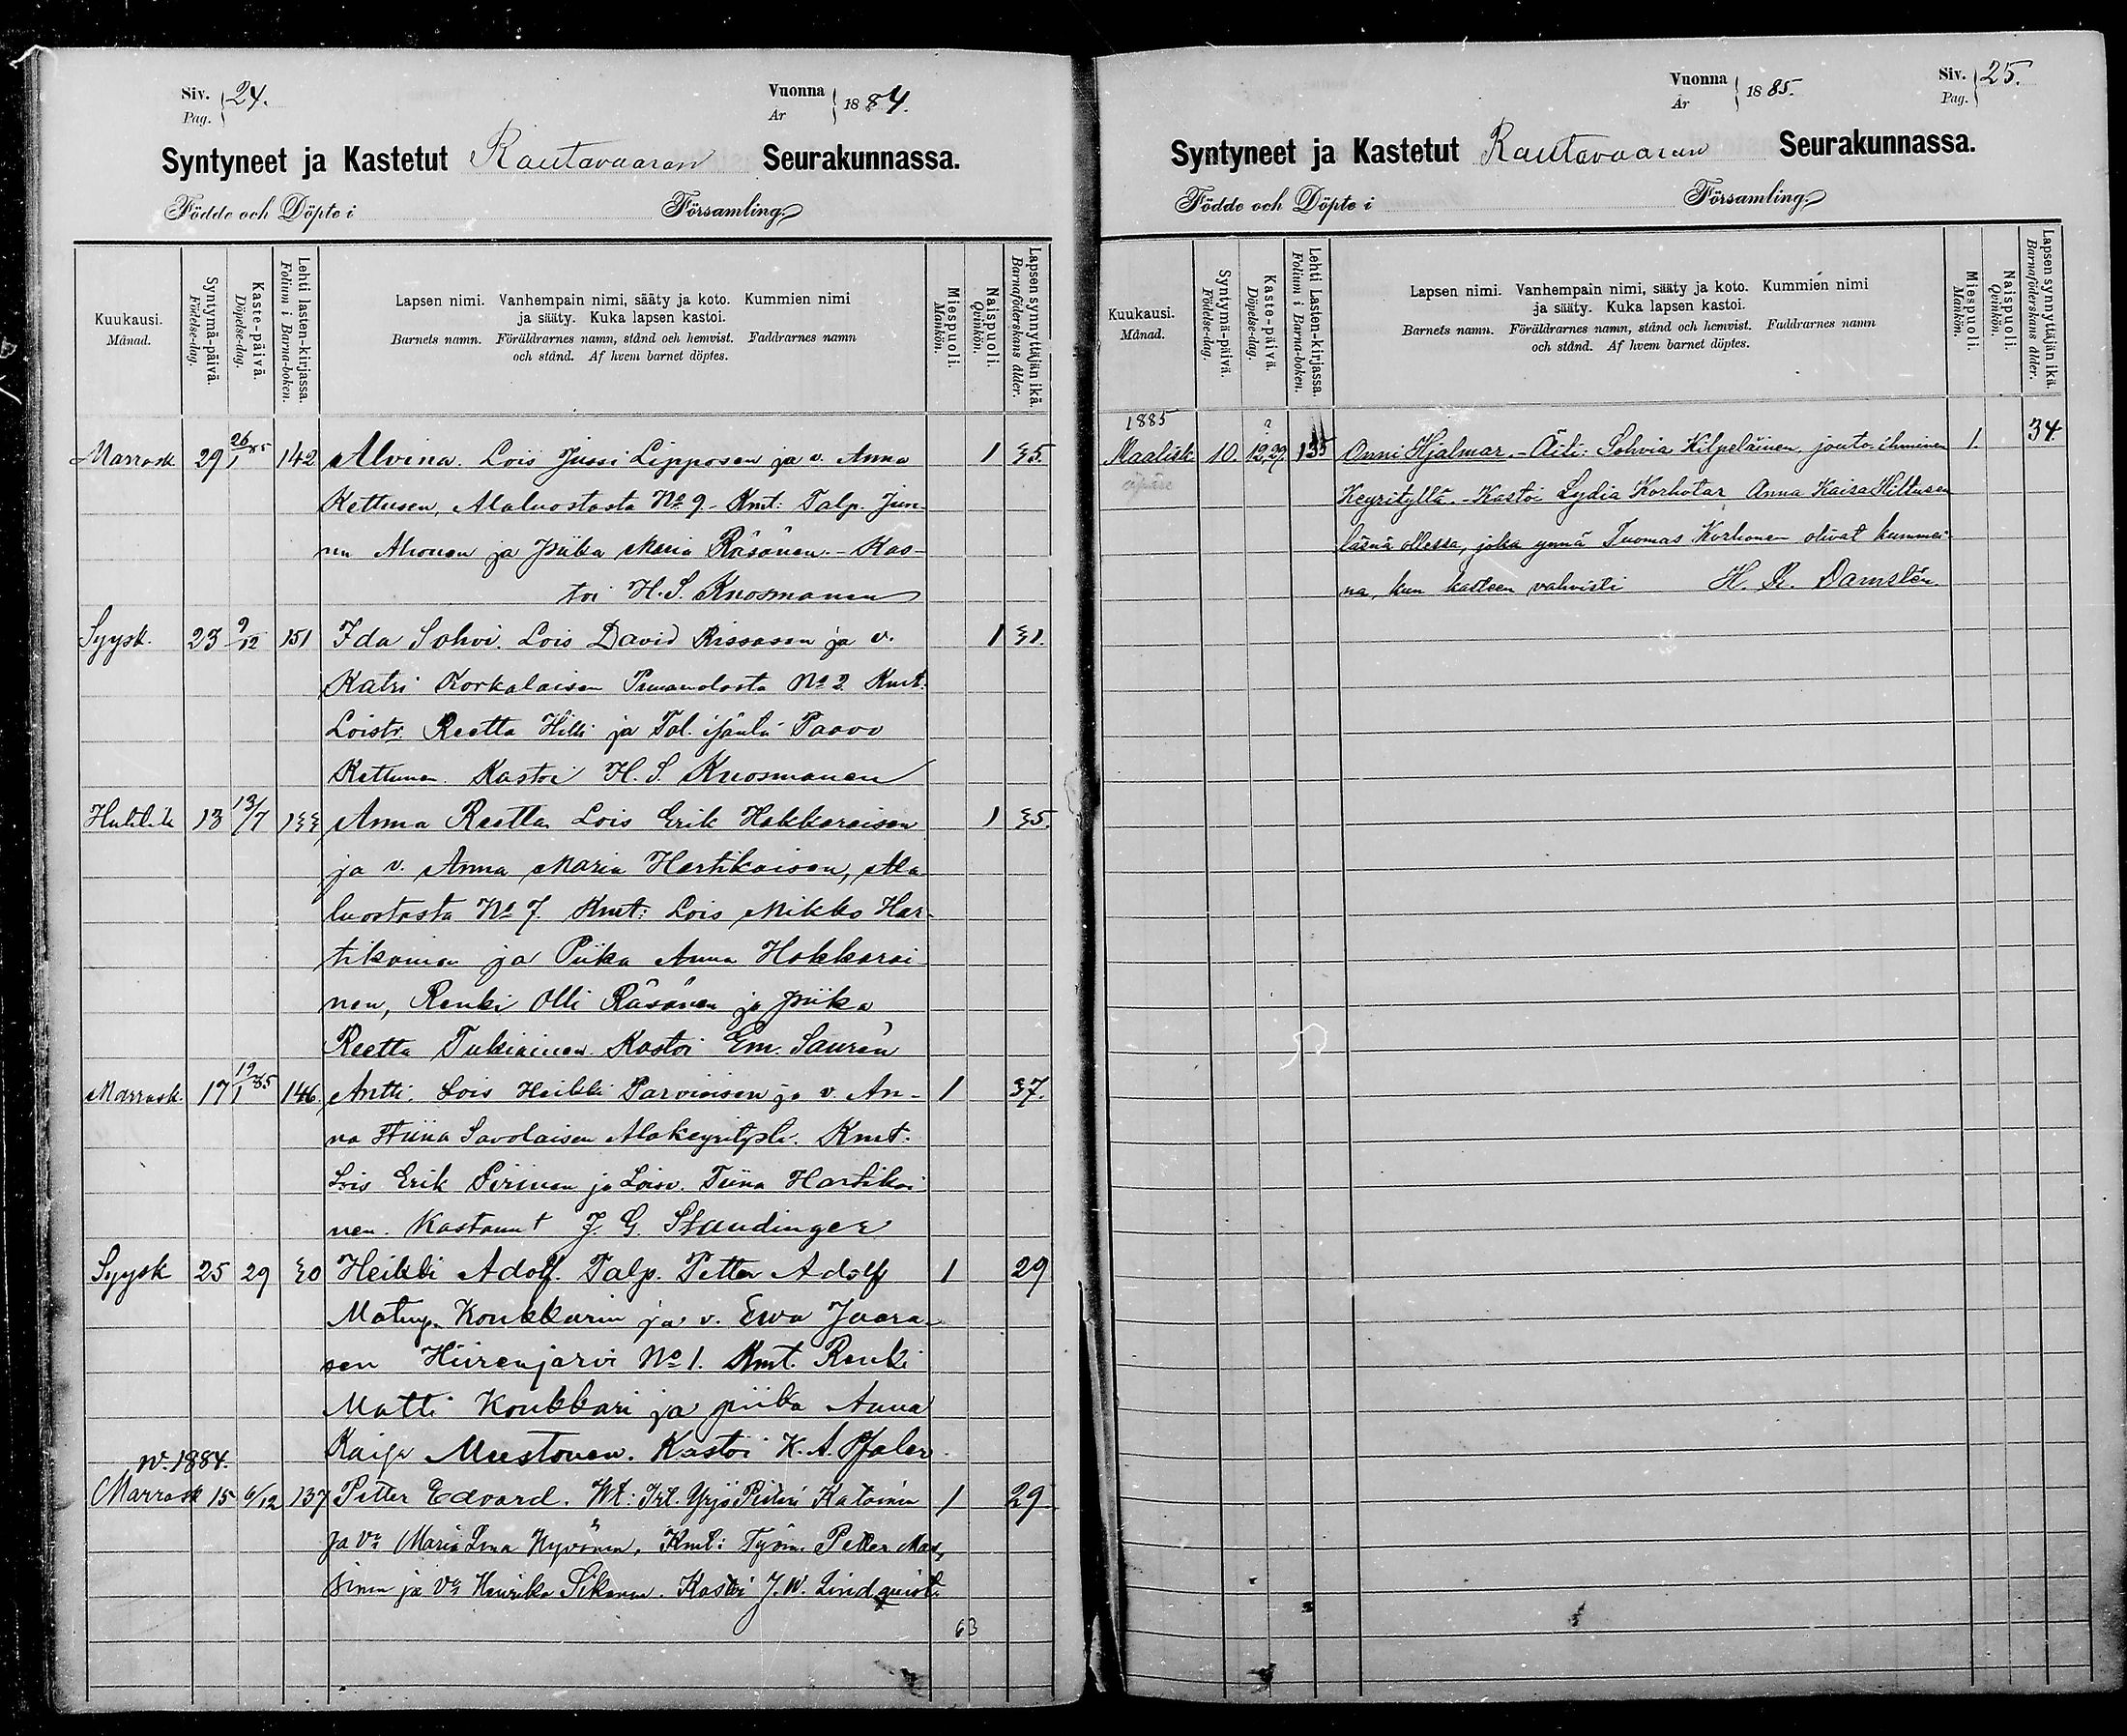 Siv. 24.
Pag.
Vuonna 1884.
År
Syntyneet ja Kastetut Rautavaaran Seurakunnassa.
Födde och Döpte i Församling.
Kuukausi.
Månad.
Syntymä-päivä.
Födelse-dag.
Kaste-päivä.
Döpelse-dag.
Lehti lasten-kirjassa.
Folium i Barna-boken.
Lapsen nimi. Vanhempain nimi, sääty ja koto. Kummien nimi
ja sääty. Kuka lapsen kastoi.
Barnets namn. Föräldrarnes namn, stånd och hemvist. Faddrarnes namn
och stånd. Af hvem barnet döptes.
Miespuoli.
Mankön.
Naispuoli.
Qvinkön.
Lapsen synnyttäjän ikä.
Barnaföderskans ålder.
Marrask 29 26/1 85 142 Alvina. Lois Jussi Lipposen ja v. Anna 1 35.
Kettusen, Alaluostasta No 9. Kmt: Talp. Jun-
nu Ahonen ja piika Maria Räsänen. - Kas-
toi H. S. Knosmanen
Syysk. 23 9/12 151 Ida Sohvi. Lois David Rissasen ja v. 1 31.
Katri Korkalaisen No 2. Kmt.
Loistr. Reetta Hilli ja Tal. isäntä Paavo
Kettunen. Kastoi H. S. Knosmanen
Huhtik 13 13/7 133 Anna Reetta Lois Erik Hakkaraisen 1 35.
ja v. Anna Maria Hartikaisen, Ala
luostasta No 7. Kmt: Lois Mikko Har-
tikainen ja Piika Anna Hakkarai
nen, Renki Olli Räsänen ja piika
Reetta Tukiainen. Kastoi Em. Saurén
Marrask. 17 19/1 85 146. Antti. Lois Heikki Parviaisen ja v. An- 1 37.
na Stiina Savolaisen Kmt.
Lois Erik Pirinen ja Loisv. Tiina Hartikai
nen. Kastanut J. G. Standinger
Syysk 25 29 30 Heikki Adolf. Talp. Petter Adolf 1 29
Matinp. Konkkarin ja v. Ewa Jaara-
sen Hiirenjarvi No 1. Kmt. Renki
Matti Konkkari ja piika Anna
Kaisa Mustonen. Kastoi K. A. Pfaler
w. 1884.
Marrask 15 6/12 137 Petter Edvard. Wt: Yrjö 1 29
ja Vo Maria Lena Hyvönen. Kmt: Työm. Petter
ja Vo Henrika Sikanen. Kastoi J. W. Lindquist.
63
Vuonna 1885.
År
Siv. 25.
Pag.
Syntyneet ja Kastetut Rautavaaran Seurakunnassa.
Födde och Döpte i Församling.
Kuukausi.
Månad.
Syntymä-päivä.
Födelse-dag.
Kaste-päivä.
Döpelse-dag.
Lehti Lasten-kirjassa.
Folium i Barna-boken.
Lapsen nimi. Vanhempain nimi, sääty ja koto. Kummien nimi
ja sääty. Kuka lapsen kastoi.
Barnets namn. Föräldrarnes namn, stånd och hemvist. Faddrarnes namn
och stånd. Af hvem barnet döptes.
Miespuoli.
Mankön.
Naispuoli.
Qvinkön.
Lapsen synnyttäjän ikä.
Barnaföderskans ålder.
1885 ?
Maalisk 10. 12,29. 135 Onni Hjalmar. - Äiti: Sohvia Kilpeläinen, jouto-ihminen 1. 34.
äpäre Keyrityltä. - Kastoi Lydia Korhotar Anna Kaisa Hiltusen
läsnä ollessa, joka ynnä Tuomas Korhonen olivat kummei-
na, kun kasteen vahvisti H. R. Damstén